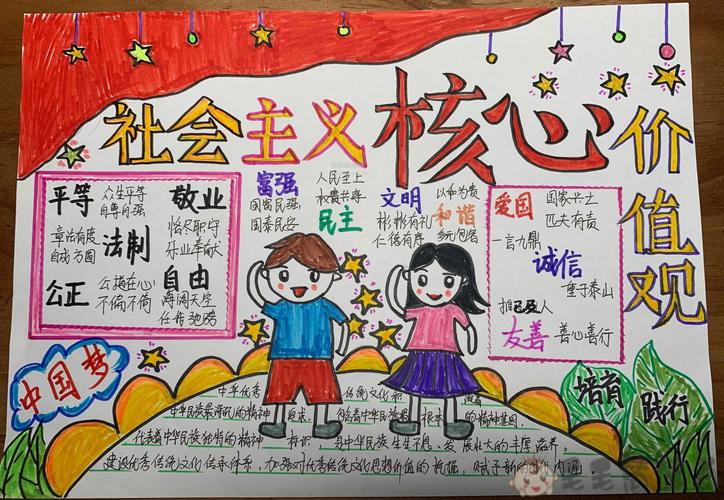 社会主义核心价值观
平等
众生平等
自尊自强
敬业
恪尽职守
乐业奉献
章法有度
自成方圆
法制
公正
公道在心
不偏不倚
自由
海阔天空
任作驰骋
富强
国富民强
国泰民安
人民至上
民主
文明
彬彬有礼
仁德有序
以和为贵
和谐
多元包容
爱国
国家兴亡
匹夫有责
一言九鼎
诚信
重于泰山
推己及人
友善
善心善行
中国梦
培育
践行
中华优秀
传统文化
中华民族最深沉的精神追求
包含着中华民族最根本的精神基因,
代表着中华民族独特的精神标识,是中华民族生生不息、发展壮大的丰厚滋养。
建设优秀传统文化传承体系,加强对优秀传统文化思想价值的挖掘,赋予新的时代内涵